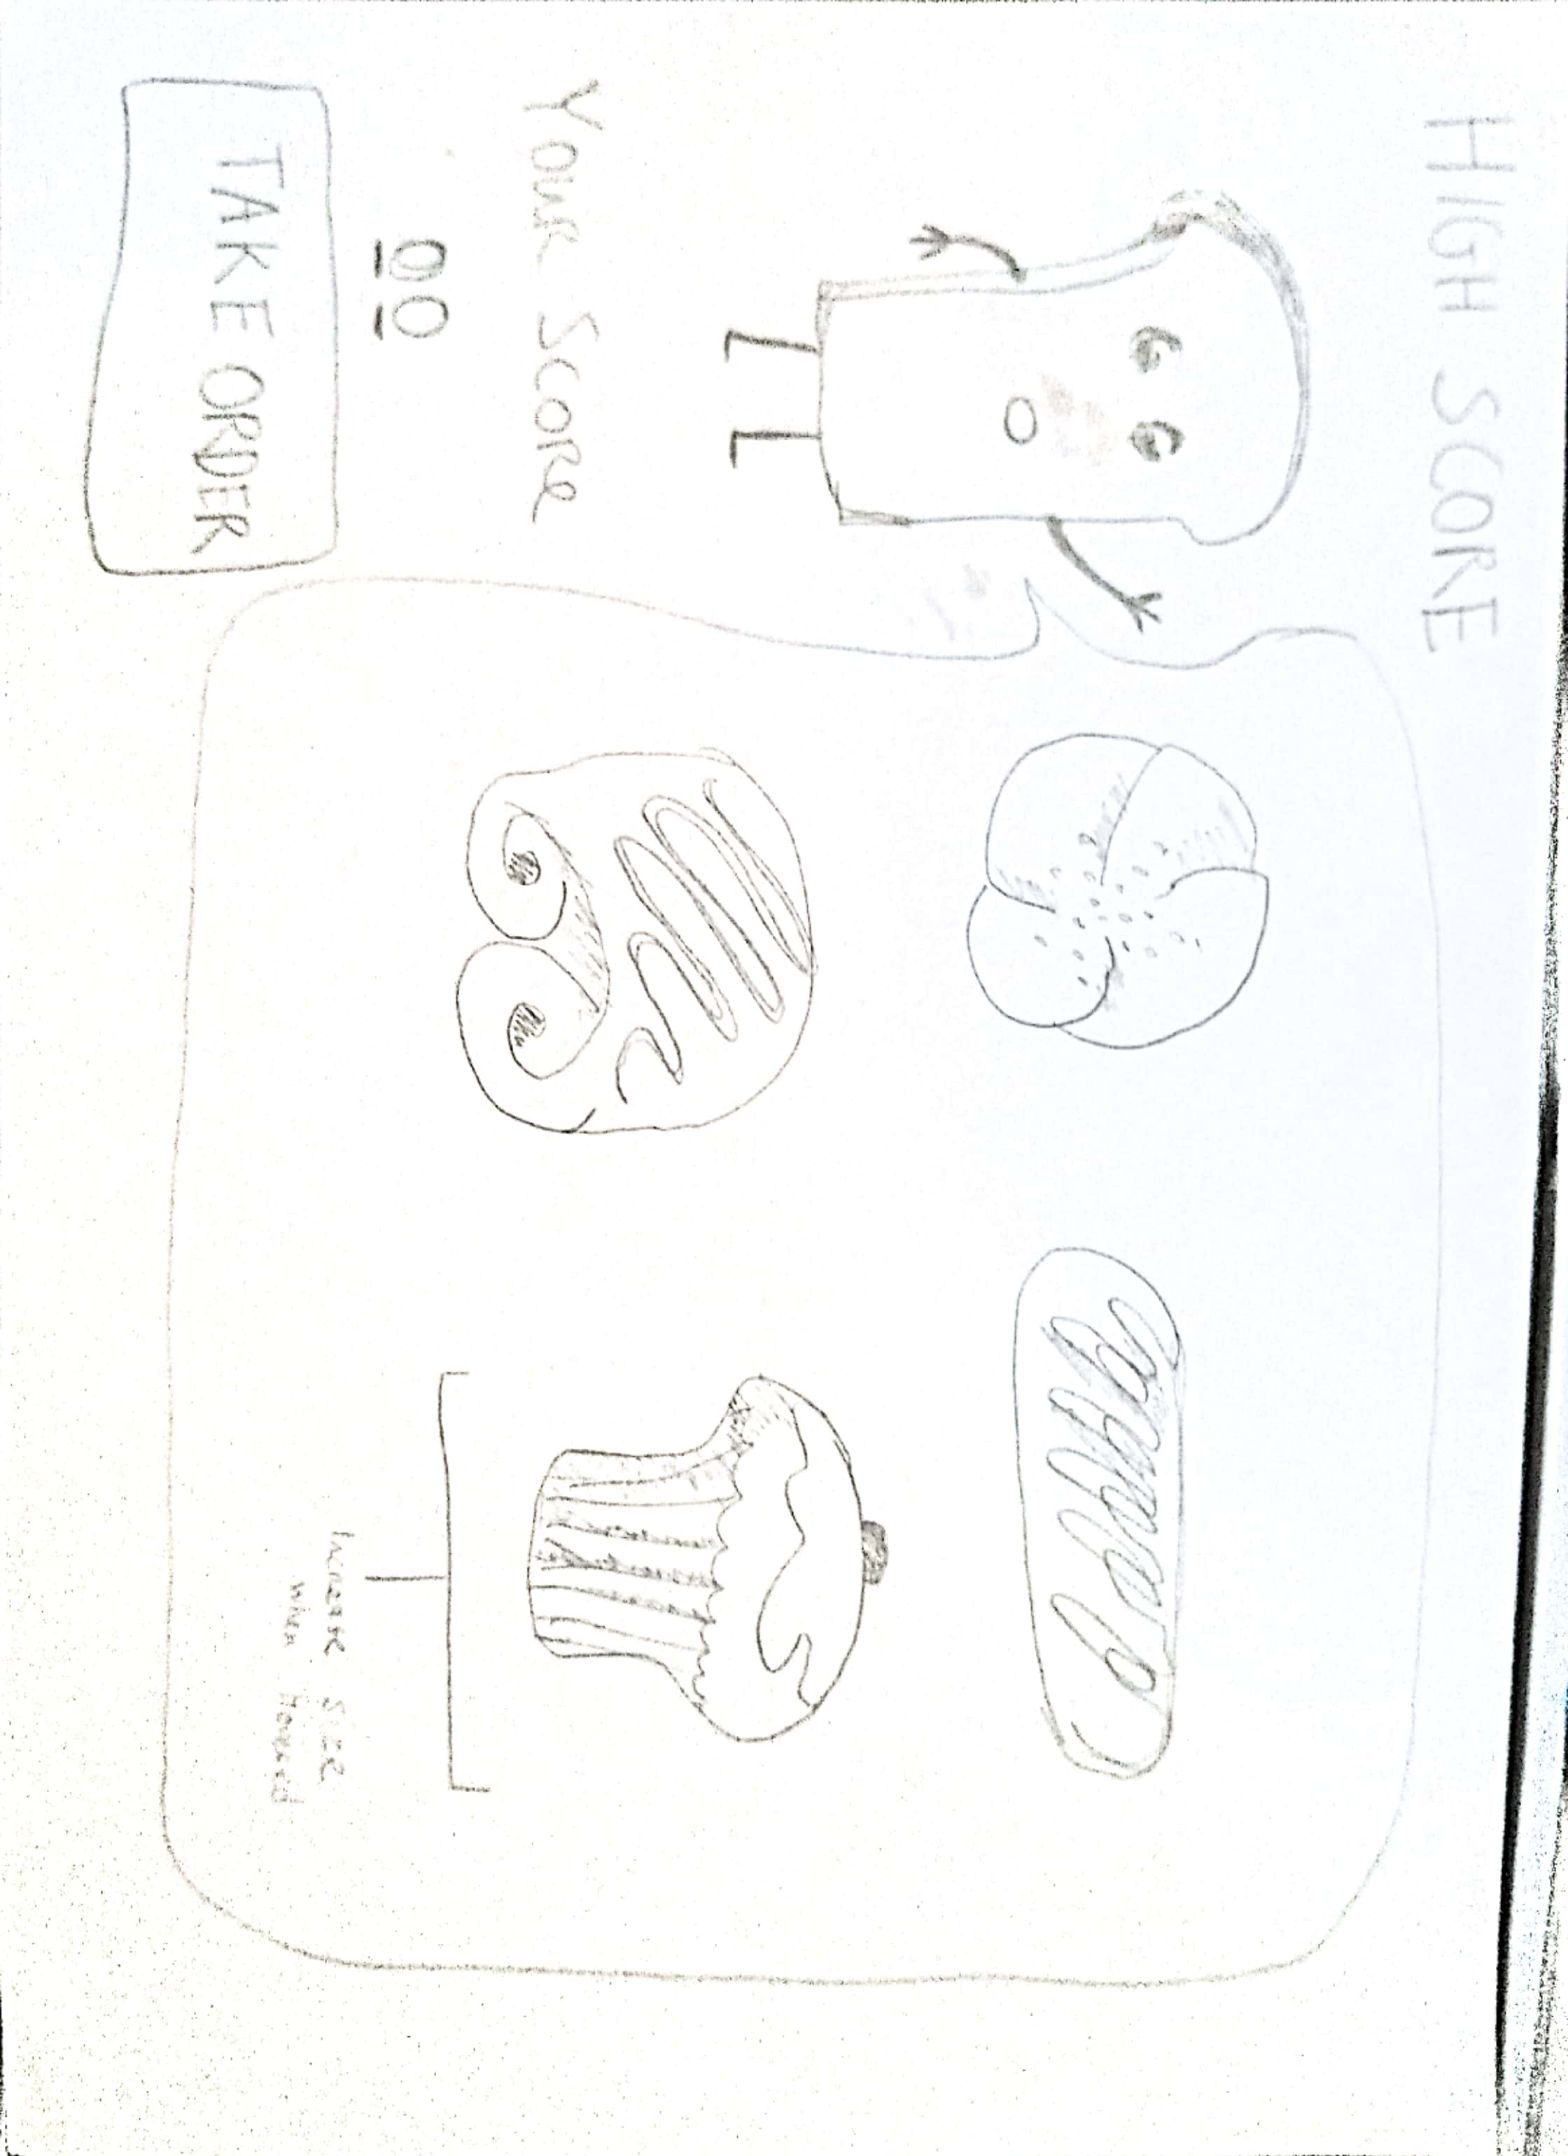 HIGH SCORE
Your Score
00
TAKE ORDER
Increase Size
when Hovered